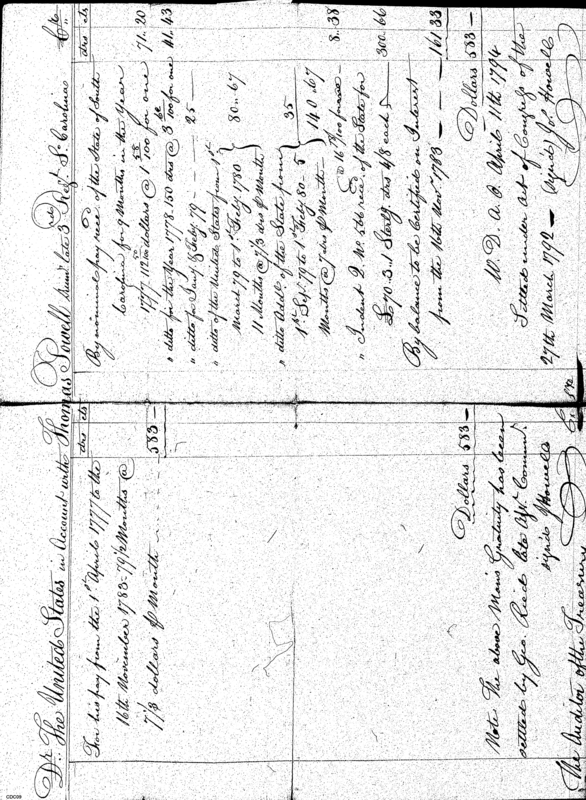 Dr. The United States in Account with Thomas Powell drum late 3rd Regt So Carolina Cr
drs cts
For his pay from the 1st April 1777 to the
16th November 1783 - 79 1/2 Months @
7 1/3 dollars P Month - - - 583 -
Dollars 583 -
Note The above Mans Gratuity has been
settled by Geo. Reid late Ast Commr.
signed J Howell
The Auditor of the Treasury
drs cts
By nominal pay recd of the State of South
Carolina for 9 Months in the Year
1777 112 50/100 dollars @ 1 58/100 for one 71.20
" ditto for the Year 1778. 150 drs @ 3 /100 for one 41.43
" ditto for Jany & Feby 79 - - 25 -
" ditto of the United States from 1st
March 79 to 1st Feby 1780
11 Months @ 7 1/3 drs P Month 80.67
" ditto Addl. of the State from
1st Sep. 79 to 1st Feby 80 - 5
Months @ 7 drs P Month 35
140.67
8.38
" Indent Q No. 566 recd of the State for
£70.3.1 Sterlg drs 4/8 each 300.66
By balance to be Certified on Interest
from the 16th Novr 1783 - - - 161 33
Dollars 583 -
W. D. A. O. April 11th 1794
Settled under Act of Congress of the
27th March 1792 - (signed) Jo. Howell
CDC09